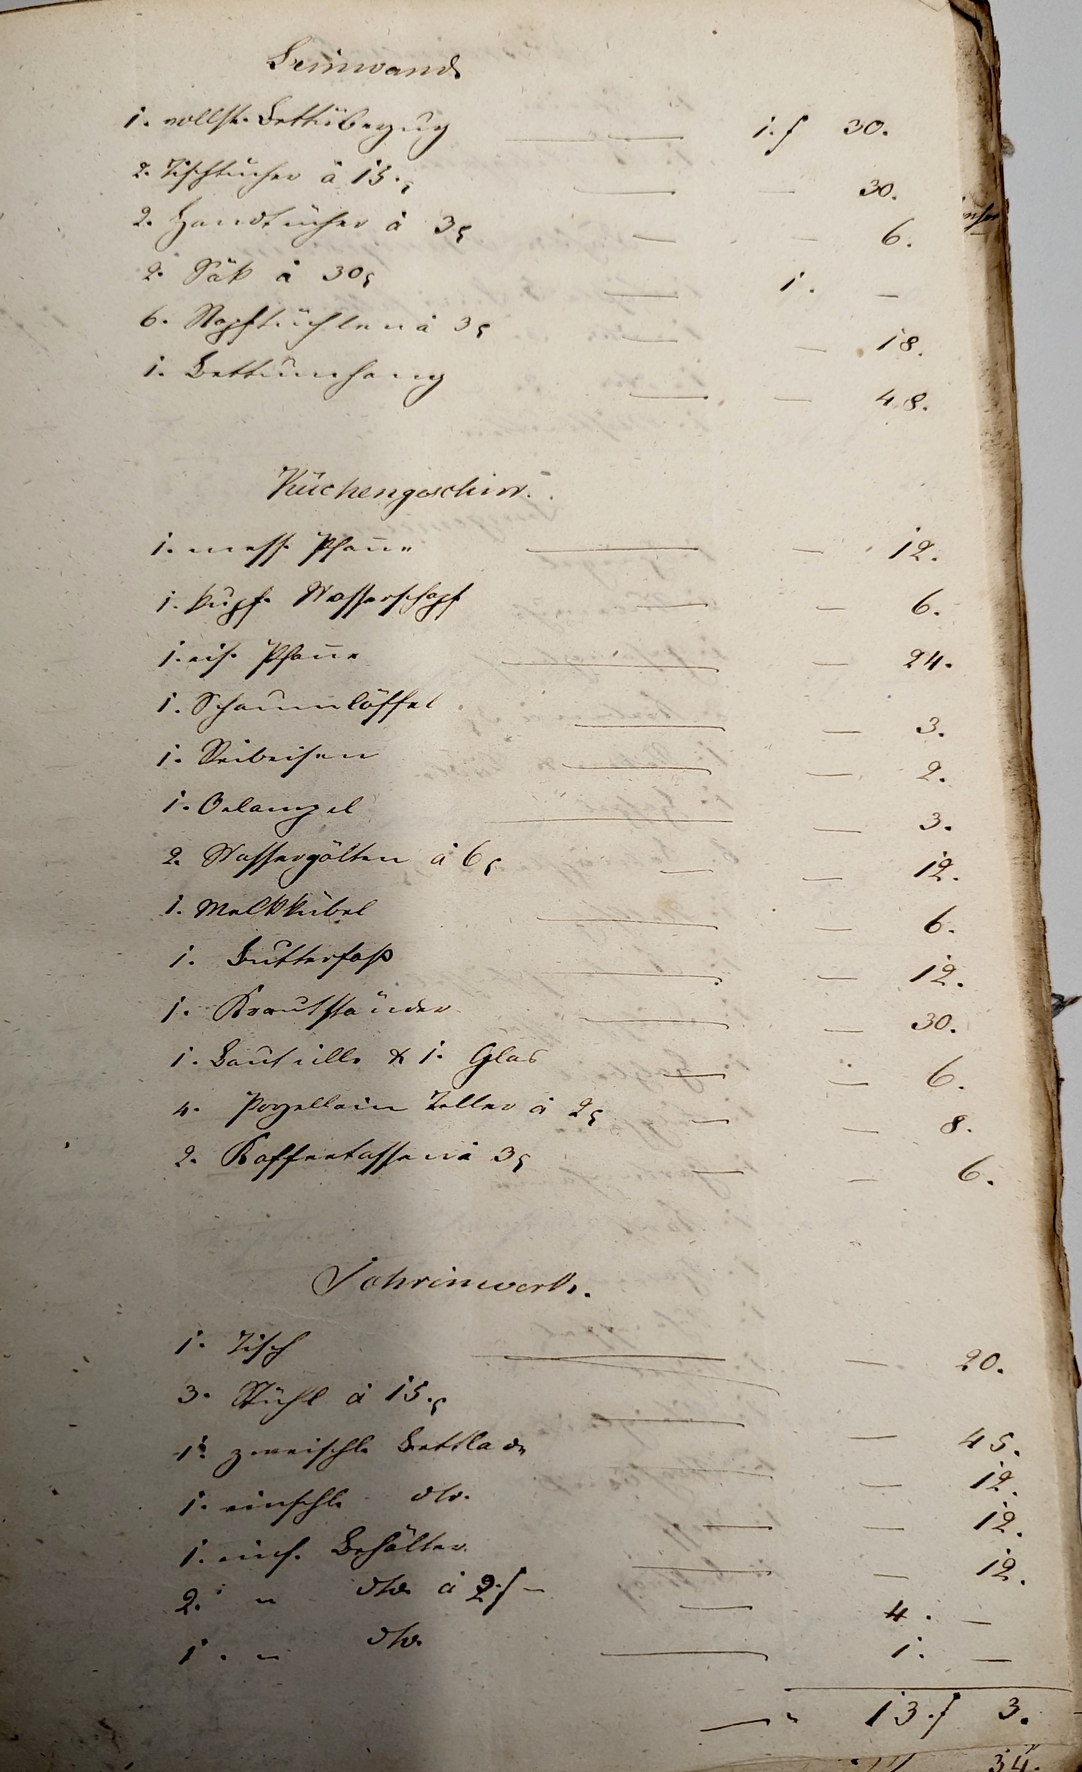 Leinwand
1. vollst. Bettübezug — 1. f 30.
2. Tischtücher à 15. — — 30.
2. Handtücher à 3 — — 6.
2. Säk à 30 — 1. —
6. Kopftüchlen à 3 — — 18.
1. Bettumhang — — 48.
Küchengeschirr.
1. mess. Pfanne — — 12.
1. kupf. Wasserschapf — — 6.
1. eis. Pfanne — — 24.
1. Schaumlöffel — — 3.
1. Reibeisen — — 2.
1. Oelampel — — 3.
2. Wassergölten à 6 — — 12.
1. Melkkübel — — 6.
1. Butterfaß — — 12.
1. Krautständer — — 30.
1. Bouteille & 1. Glas — — 6.
4. Porzellain Teller à 2 — — 8.
2. Kaffeetassen à 3 — — 6.
Schreinwerk.
1. Tisch — — 20.
3. Stühl à 15. — — 45.
1. zweischl. Bettlade — 12.
1. einschl. dto. — — 12.
1. einf. Behälter — — 12.
2. " dto. à 2 f — — 4. —
1. " dto. — 1. —
— " 13. f 3.
34.